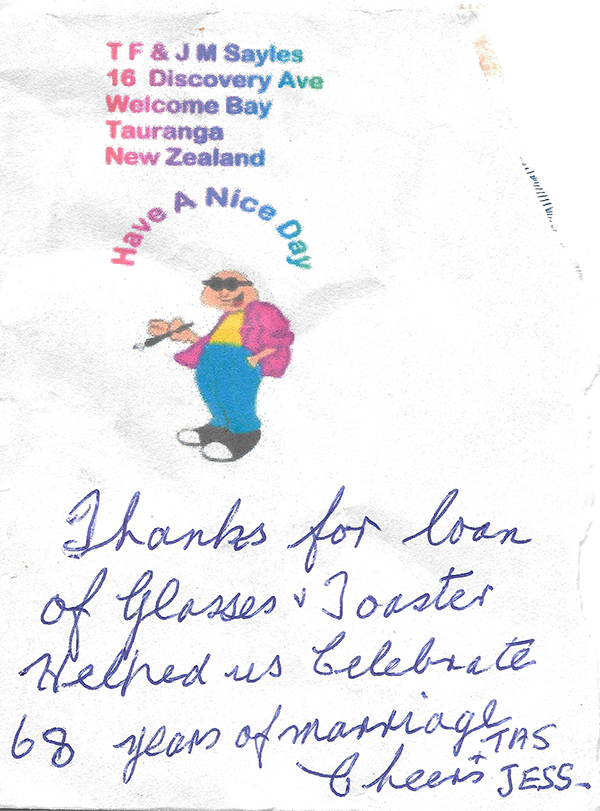 T F & J M Sayles
16 Discovery Ave
Welcome Bay
Tauranga
New Zealand
Have A Nice Day
Thanks for loan
of Glasses & Toaster
Helped us Celebrate
68 years of marriage
Cheers TAS
+ JESS.